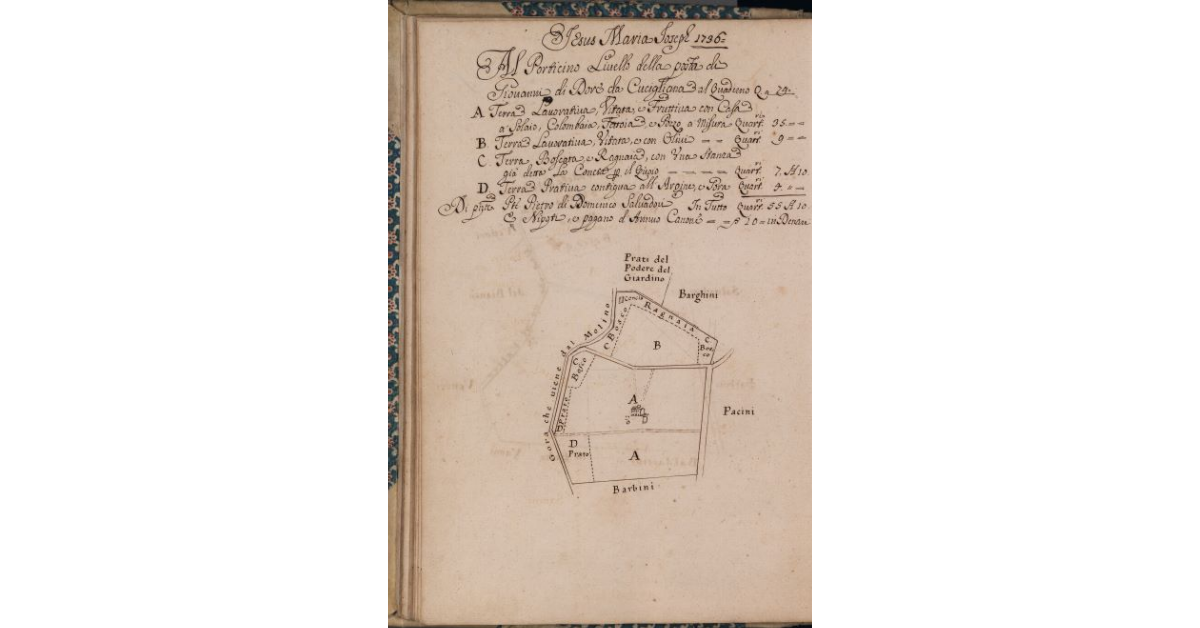 Jesus Maria Joseph 1736=
Al Porticino Livello della posta di
Giovanni di Dore da Cucigliana al Quaderno 24=
A Terra Lavorativa, Vitata, e Fruttiva con Casa
a Solaio, Colombaia, e Pozzo, a Misura Quart. 35 = =
B Terra Lavorativa, Vitata, e con Olivi = = Quart. 9 = =
C Terra Boscata e Ragnaia, con Una Stanza
già detta La Concia = = = = Quart. 7.
D Terra Prativa contigua all Argine, e Gora Quart. = =
Pietro di Domenico Salvadori In Tutto Quart. 55
E Nipoti, e pagano d Annuo Canone = = 10 =
Prati del
Podere del
Giardino
Barghini
C Bosco
Ragnaia
C
Bosco
B
Gora che viene dal Molino
C
Bosco
A
D Prato
Pacini
D
Prato
A
Barbini